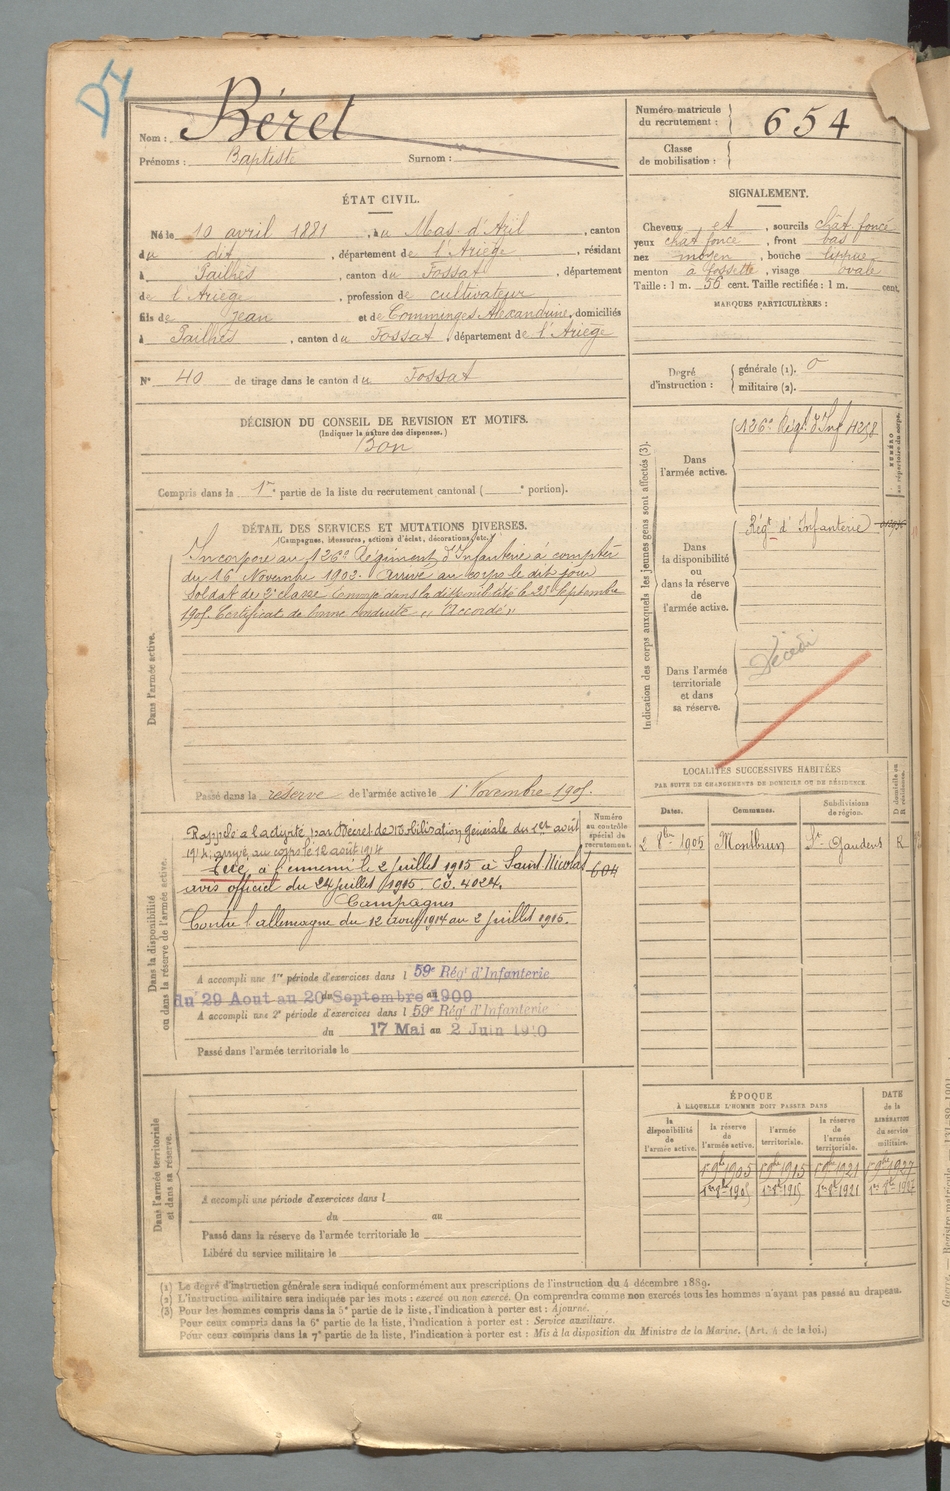 D4
Nom : Béret
Prénoms : Baptiste Surnom :
Numéro matricule du recrutement : 654
Classe de mobilisation :
ÉTAT CIVIL.
Né le 10 avril 1881, à u Mas d'Azil, canton
du dit, département de l'Ariège, résidant
à Pailhès, canton du Fossat, département
de l'Ariège, profession de cultivateur
fils de Jean et de Comminges Alexandrine, domiciliés
à Pailhès, canton du Fossat, département de l'Ariège
N° 40 de tirage dans le canton du Fossat
SIGNALEMENT.
Cheveux et, sourcils chât foncé
yeux chât foncé, front bas
nez moyen, bouche lippue
menton à fossette, visage ovale
Taille : 1 m. 56 cent. Taille rectifiée : 1 m. cent.
MARQUES PARTICULIÈRES :
Degré d'instruction : générale (1). 0
militaire (2).
DÉCISION DU CONSEIL DE REVISION ET MOTIFS.
(Indiquer la nature des dispenses.)
Bon
Compris dans la 1re partie de la liste du recrutement cantonal ( e portion).
DÉTAIL DES SERVICES ET MUTATIONS DIVERSES.
(Campagnes, blessures, actions d'éclat, décorations, etc.)
Dans l'armée active.
Incorporé au 126e Régiment d'Infanterie à compter
du 16 Novembre 1902. Arrivé au corps le dit jour
Soldat de 2e classe Envoyé dans la disponibilité le 23 Septembre
1905. Certificat de bonne conduite "Accordé"
Passé dans la réserve de l'armée active le 1 Novembre 1905.
Indication des corps auxquels les jeunes gens sont affectés (3).
NUMÉRO au répertoire du corps.
Dans l'armée active.
126e Régt d'Inf 4258
Dans la disponibilité ou dans la réserve de l'armée active.
Régt d'Infanterie
Dans l'armée territoriale et dans sa réserve.
Décédé
Dans la disponibilité ou dans la réserve de l'armée active.
Numéro au contrôle spécial du recrutement.
604
Rappelé à l'activité par Décret de Mobilisation générale du 1er août
1914, arrivé au corps le 12 août 1914
Tué à l'ennemi le 2 juillet 1915 à Saint Nicolas
avis officiel du 24 juillet 1915. CO. 4024.
Campagnes
Contre l'allemagne du 12 août 1914 au 2 juillet 1915.
A accompli une 1re période d'exercices dans l 59e Rég' d'Infanterie
du 29 Aout au 20 Septembre 1909
A accompli une 2e période d'exercices dans l 59e Rég' d'Infanterie
du 17 Mai au 2 Juin 1910
Passé dans l'armée territoriale le
LOCALITÉS SUCCESSIVES HABITÉES
PAR SUITE DE CHANGEMENTS DE DOMICILE OU DE RÉSIDENCE
Dates. Communes. Subdivisions de région. D domicile ou R résidence.
2 8bre 1905 Montbrun St Gaudens R
Dans l'armée territoriale et dans sa réserve.
A accompli une période d'exercices dans l
du au
Passé dans la réserve de l'armée territoriale le
Libéré du service militaire le
ÉPOQUE
À LAQUELLE L'HOMME DOIT PASSER DANS
la disponibilité de l'armée active. la réserve de l'armée active. l'armée territoriale. la réserve de l'armée territoriale.
DATE de la LIBÉRATION du service militaire.
1 9bre 1905 1 9bre 1915 1 9bre 1921 1 9bre 1927
1er 8bre 1905 1er 8bre 1915 1er 8bre 1921 1er 8bre 1927
(1) Le degré d'instruction générale sera indiqué conformément aux prescriptions de l'instruction du 4 décembre 1889.
(2) L'instruction militaire sera indiquée par les mots : exercé ou non exercé. On comprendra comme non exercés tous les hommes n'ayant pas passé au drapeau.
(3) Pour les hommes compris dans la 5e partie de la liste, l'indication à porter est : Ajourné.
Pour ceux compris dans la 6e partie de la liste, l'indication à porter est : Service auxiliaire.
Pour ceux compris dans la 7e partie de la liste, l'indication à porter est : Mis à la disposition du Ministre de la Marine. (Art. 4 de la loi.)